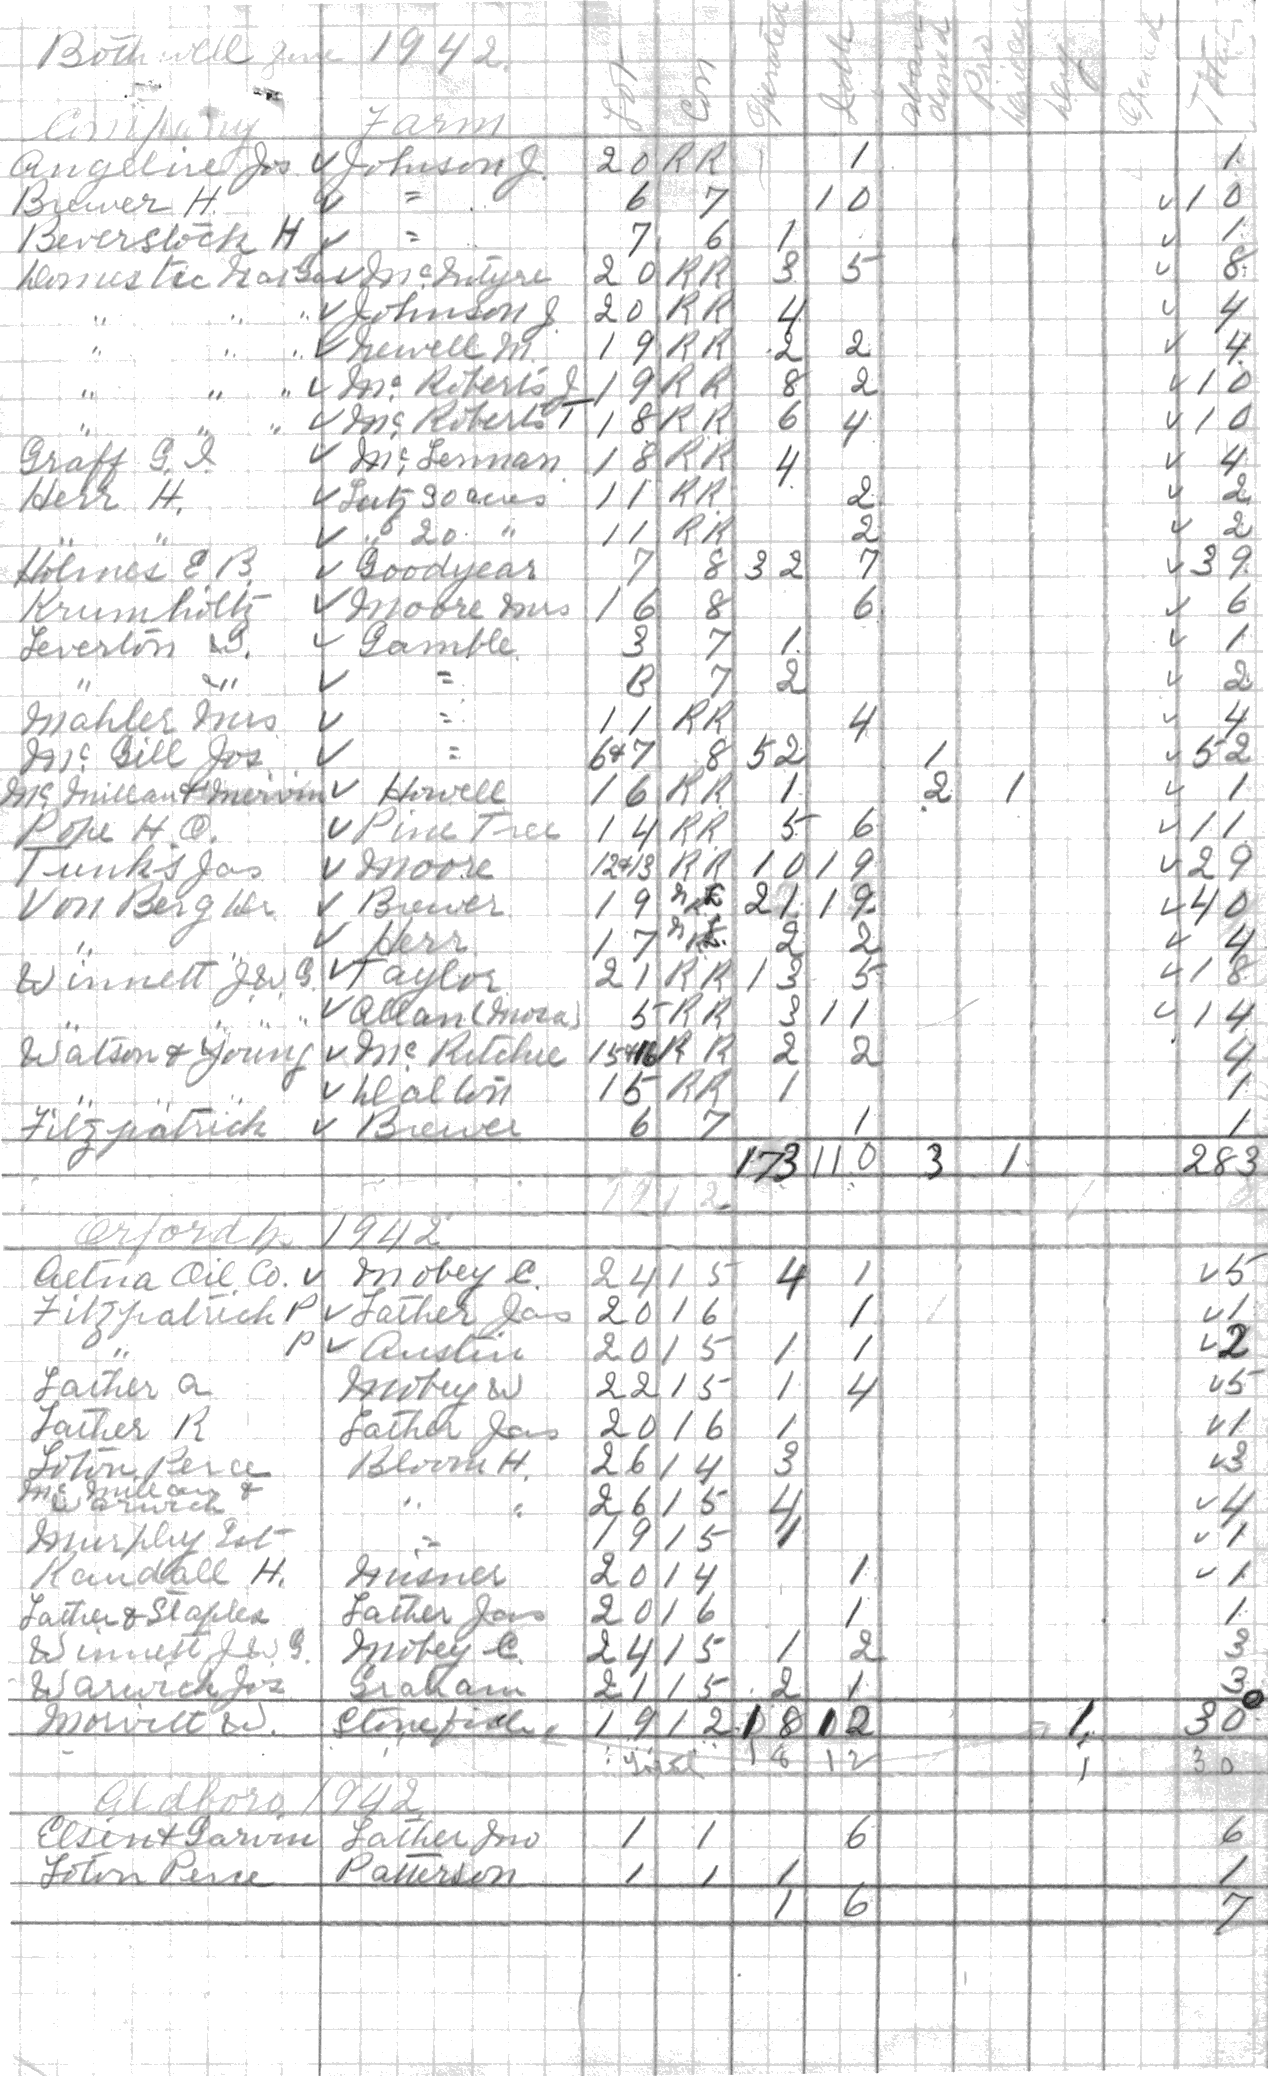 Bothwell June 1942.
Company Farm Lot Con Operated Idle Aban doned Dry Total
Angeline Jos. ✓ Johnson J. 20 RR 1 1
Brewer H. ✓ = 6 7 10 ✓ 10
Beverstock H ✓ = 7 6 1 ✓ 1
Domestic Gas ✓ McIntyre 20 RR 3 5 ✓ 8
" " " ✓ Johnson J 20 RR 4 ✓ 4
" " " ✓ Newell M. 19 RR 2 2 ✓ 4
" " " ✓ Mc Roberts J 19 RR 8 2 ✓ 10
" " " ✓ Mc Roberts T 18 RR 6 4 ✓ 10
Graff G. I. ✓ Mc Lennan 18 RR 4 ✓ 4
Herr H. ✓ 30 acres 11 RR 2 ✓ 2
" " ✓ " 20 " 11 RR 2 ✓ 2
Holmes E. B. ✓ Goodyear 7 8 32 7 ✓ 39
Krumholtz ✓ Moore Mrs 16 8 6 ✓ 6
Leverton W. ✓ Gamble 3 7 1 ✓ 1
" " ✓ = B 7 2 ✓ 2
Mahler Mrs ✓ = 11 RR 4 ✓ 4
Mc Gill Jos. ✓ = 6&7 8 52 1 ✓ 52
Mc Millan & Mervin ✓ Howell 16 RR 1 2 1 ✓ 1
Pope H. O. ✓ Pine Tree 14 RR 5 6 ✓ 11
Tunks Jas ✓ Moore 12&13 RR 10 19 ✓ 29
Von Berg Wr ✓ Brewer 19 21 19 ✓ 40
" " ✓ Herr 17 2 2 ✓ 4
Winnett J. W. G. ✓ Taylor 21 RR 13 5 ✓ 18
" " " " ✓ Allan (Mosa) 5 RR 3 11 ✓ 14
Watson & Young ✓ Mc Ritchie 15&16 RR 2 2 4
" " " ✓ Dalton 15 RR 1 1
Fitzpatrick ✓ Brewer 6 7 1 1
173 110 3 1 283
Orford Tp. 1942
Aetna Oil Co. ✓ Mobey C. 24 15 4 1 ✓ 5
Fitzpatrick P ✓ Lather Jas 20 16 1 ✓ 1
" P ✓ Austin 20 15 1 1 ✓ 2
Lather A Mobey W 22 15 1 4 ✓ 5
Lather R Lather Jas 20 16 1 ✓ 1
Loton Perce Bloom H. 26 14 3 ✓ 3
Mc Millan &
Warwick " " 26 15 4 ✓ 4
Murphy Est = 19 15 1 ✓ 1
Randall H. Misner 20 14 1 ✓ 1
Lather & Staples Lather Jas 20 16 1 1
Winnett J. W. G. Mobey C. 24 15 1 2 3
Warwick Jos Graham 21 15 2 1 3
W. 19 12 18 12 1 30
Total 18 12 1 30
Aldboro 1942
Elsin & Garvin Lather Jno 1 1 6 6
Loton Perce Patterson 1 1 1 1
1 6 7